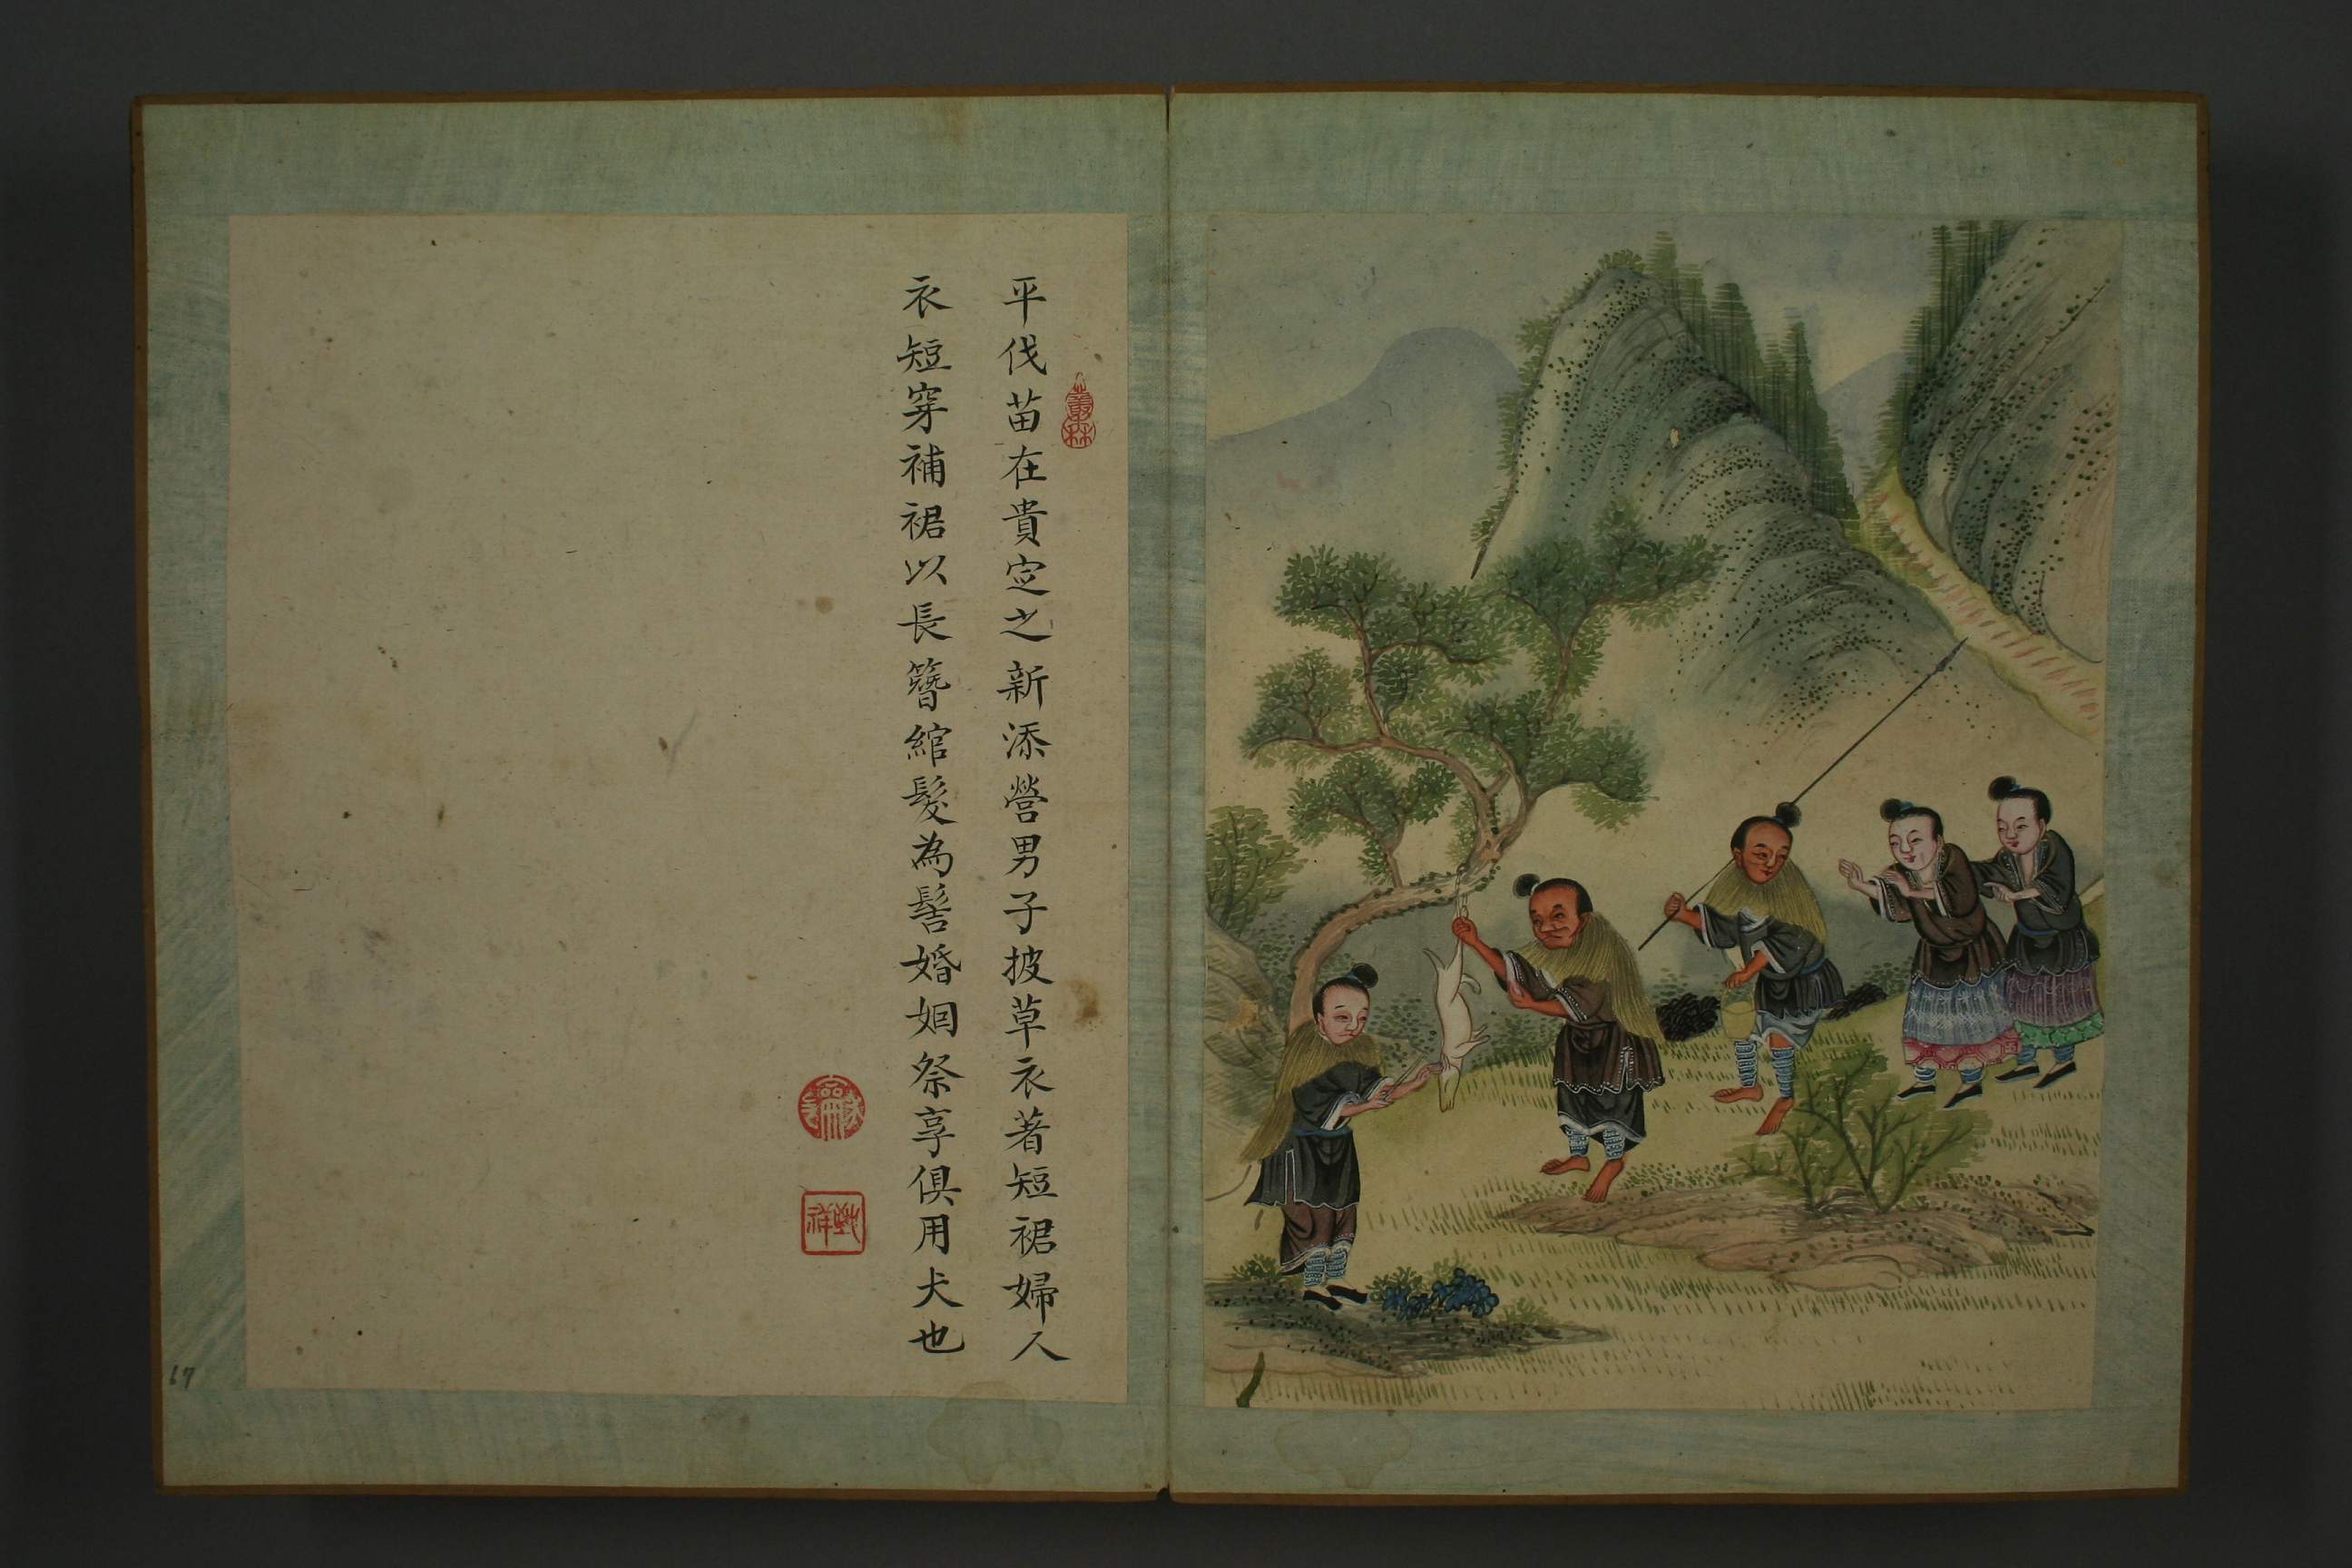 平伐苗在貴定之新添營男子披草衣著短裙婦人
衣短穿補裙以長簪綰髮為髻婚姻祭享俱用犬也
17